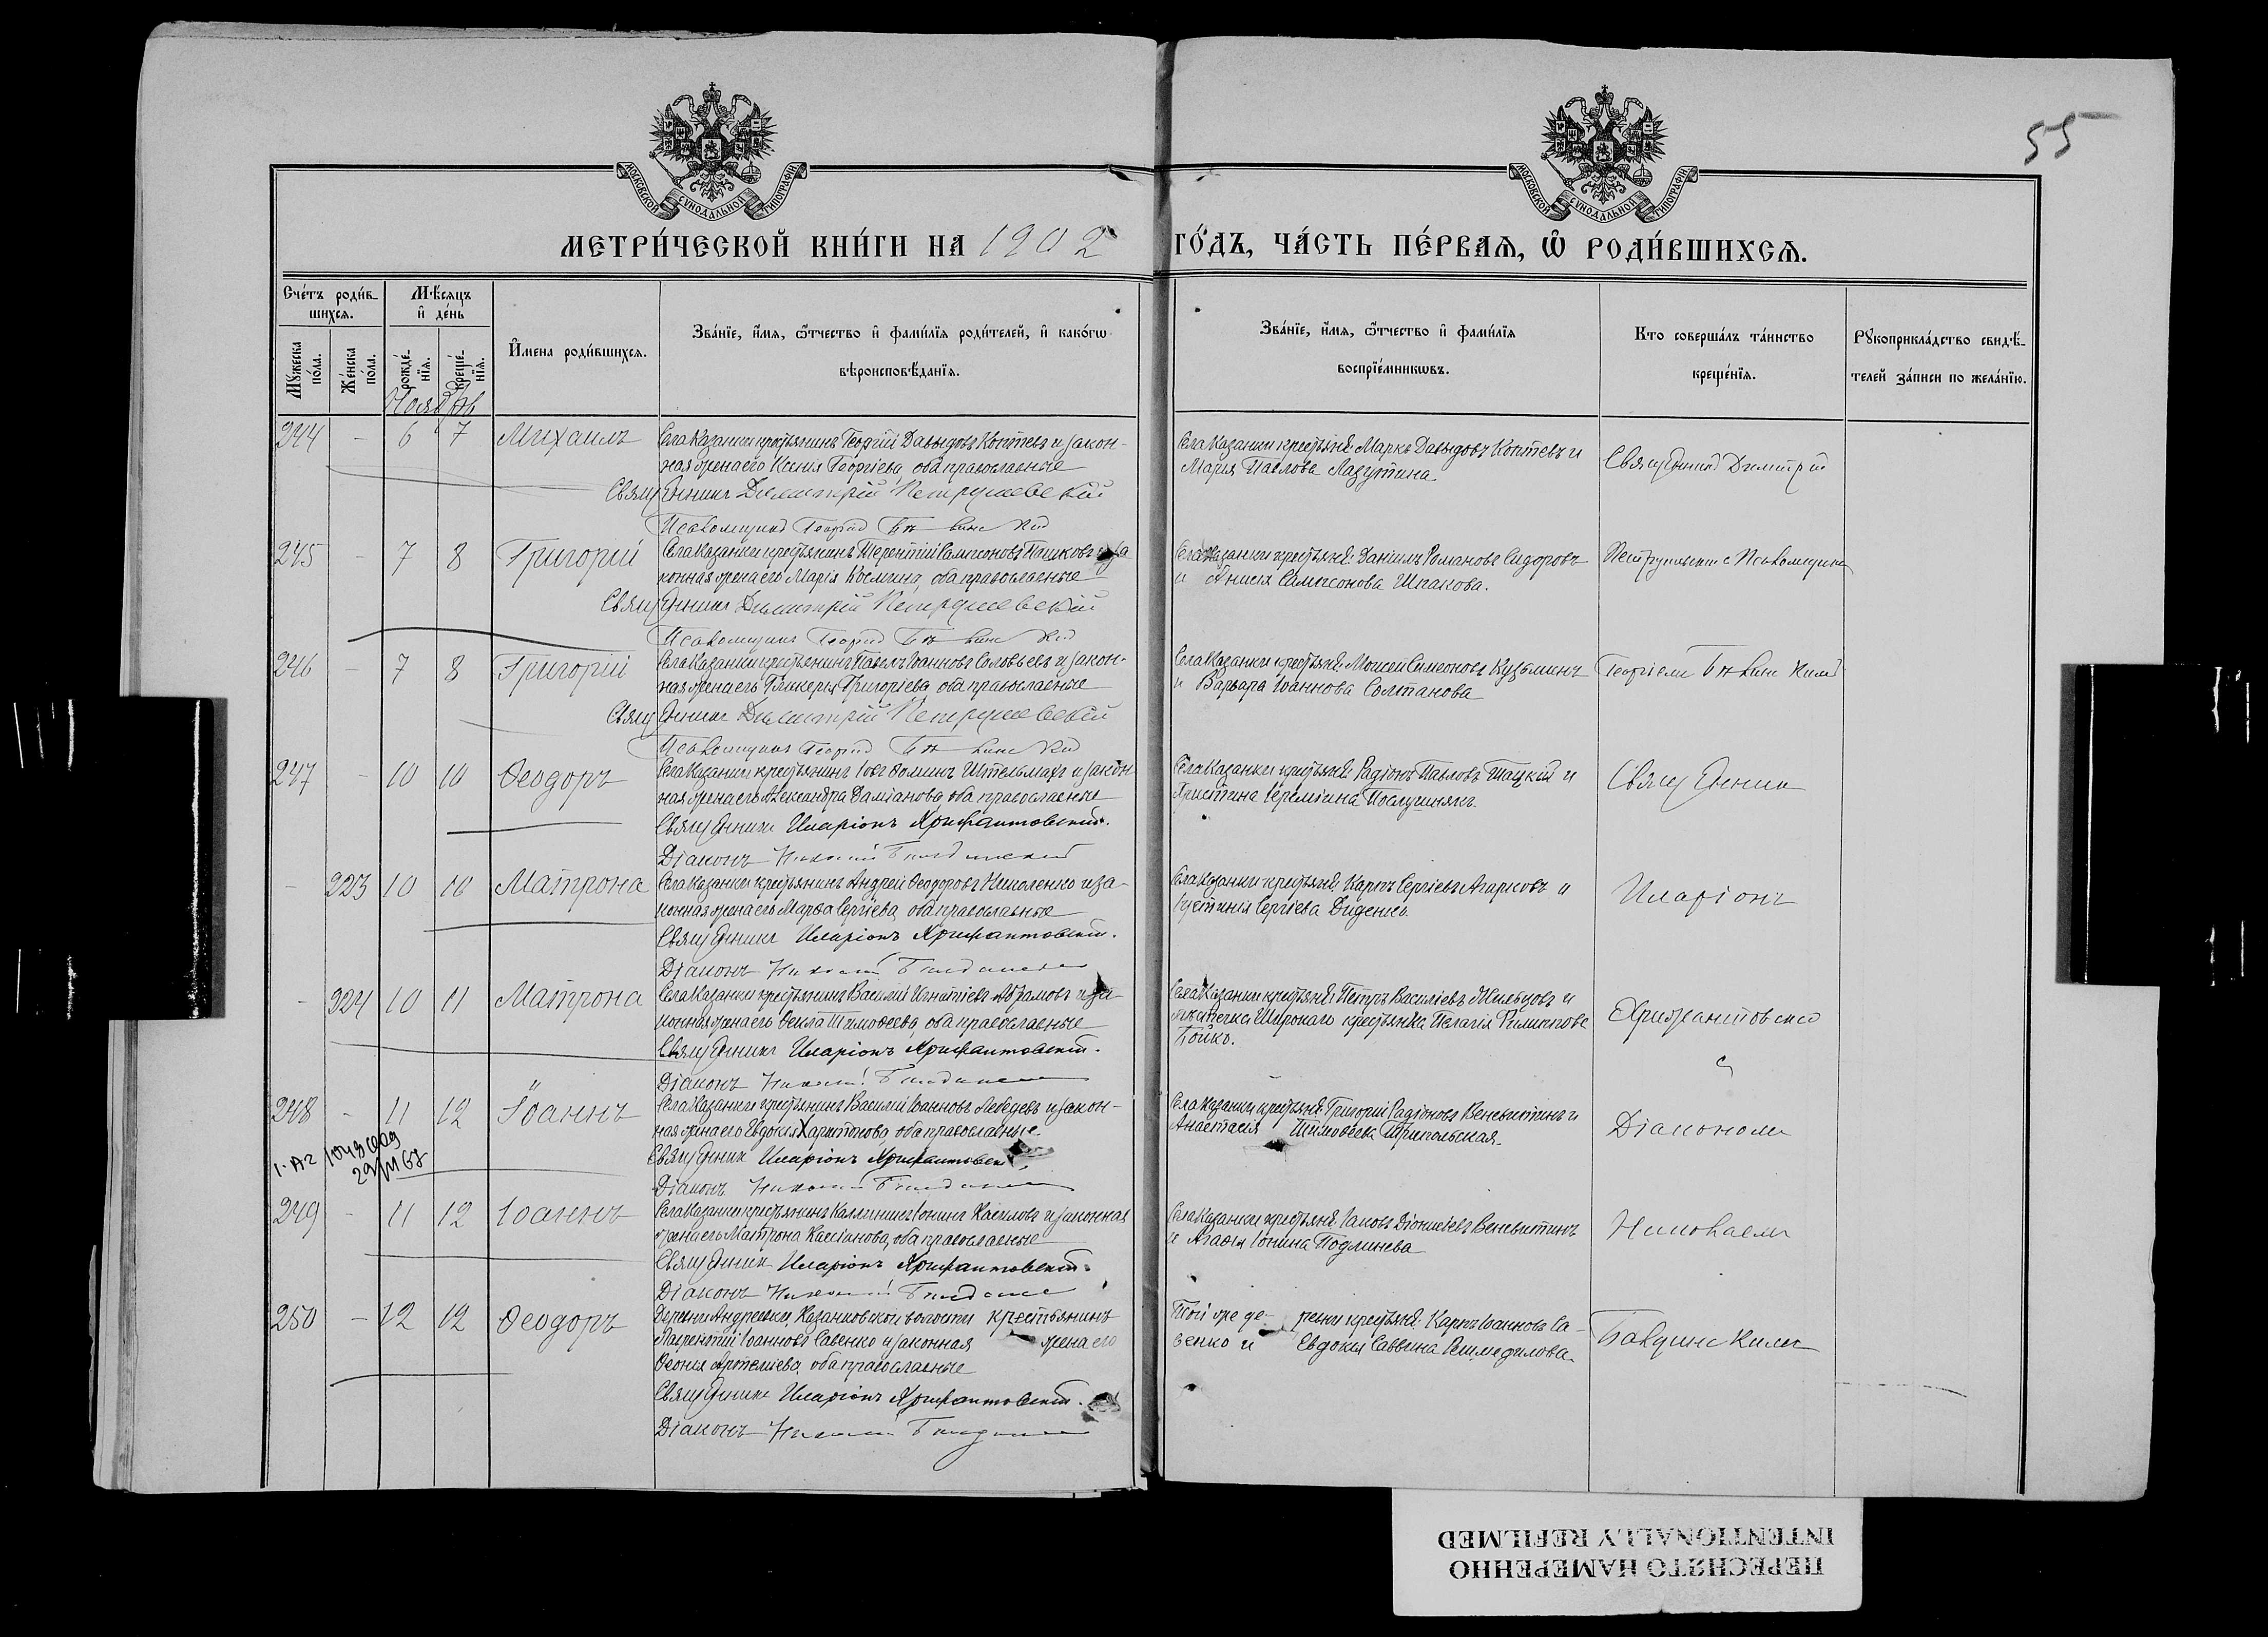 55
МОСКОВСКОЙ СѴНОДАЛЬНОЙ ТИПОГРАФІИ
МОСКОВСКОЙ СѴНОДАЛЬНОЙ ТИПОГРАФІИ
МЕТРИ́ЧЕСКОЙ КНИ́ГИ НА 1902 ГО́ДЪ, ЧА́СТЬ ПЕ́РВАЯ, Ѡ҆ РОДИ́ВШИХСѦ.
Сче́тъ роди́вшихсѧ.
Мꙋ́жеска по́ла.
Же́нска по́ла.
Мѣ́сѧцъ и҆ де́нь
рожде́нїѧ.
креще́нїѧ.
И҆мена роди́вшихсѧ.
Зва́нїе, и҆́мѧ, ѻ҆́тчество и҆ фами́лїѧ роди́телей, и҆ како́гѡ
вѣроисповѣ́данїѧ.
Зва́нїе, и҆́мѧ, ѻ҆́тчество и҆ фами́лїѧ
воспрїе́мникѡвъ.
Кто соверша́лъ та́инство
креще́нїѧ.
Рꙋкоприкла́дство свидѣ́-
телей за́писи по жела́нїю.
Ноябрь
244 - 6 7 Михаилъ
Села Казанки крестьянинъ Георгій Давыдовъ Коптевъ и закон-
ная жена его Ксенія Георгіева, оба православные
Священникъ Димитрій Петрушевскій
Псаломщикъ Георгій
Села Казанки крестьяне: Маркъ Давыдовъ Коптевъ и
Марія Павлова Лазутина.
Священникъ Димитрій
245 - 7 8 Григорій
Села Казанки крестьянинъ Терентій Сампсоновъ Пашковъ и за
конная жена его Марія Космина, оба православные
Священникъ Димитрій Петрушевскій
Псаломщикъ Георгій
Села Казанки крестьяне: Даніилъ Романовъ Сидоровъ
и Анисія Сампсонова Шпакова.
Петрушевскій с Псаломщикомъ
246 - 7 8 Григорій
Села Казанки крестьянинъ Павелъ Іоанновъ Соловьевъ и закон-
ная жена его Гликерія Григоріева, оба православные
Священникъ Димитрій Петрушевскій
Псаломщикъ Георгій
Села Казанки крестьяне: Моисей Симеоновъ Кузьминъ
и Варвара Іоаннова Солтанова
Георгіемъ
247 - 10 10 Ѳеодоръ
Села Казанки крестьянинъ Іовъ Ѳоминъ Штельмахъ и закон
ная жена его Александра Даміанова, оба православные
Священникъ Иларіонъ Хрисантовскій.
Діаконъ Николай
Села Казанки крестьяне: Радіонъ Павловъ Тацкій и
Христина Іереміина Послушнякъ.
Священник
- 223 10 10 Матрона
Села Казанки крестьянинъ Андрей Ѳеодоровъ Николенко и за-
конная жена его Марѳа Сергіева, оба православные
Священникъ Иларіонъ Хрисантовскій.
Діаконъ Николай
Села Казанки крестьяне: Карпъ Сергіевъ Агарковъ и
Іустинія Сергіева Диденко.
Иларіонъ
- 224 10 11 Матрона
Села Казанки крестьянинъ Василій Игнатіевъ Абрамовъ и за-
конная жена его Ѳекла Тимоѳеева, оба православные
Священникъ Иларіонъ Хрисантовскій.
Діаконъ Николай
Села Казанки крестьяне: Петръ Василіевъ Жильцовъ и
мѣстечка Широкаго крестьянка Пелагія Филиппова
Бойко.
Хрисантовскій
с
248 - 11 12 Іоаннъ
Села Казанки крестьянинъ Василій Іоанновъ Лебедевъ и закон-
ная жена его Евдокія Харитонова, оба православные.
Священник Иларіонъ Хрисантовскій
Діаконъ Николай
Села Казанки крестьяне: Григорій Радіоновъ Веневитинъ и
Анастасія Тимоѳеева Трипольская.
Діакономъ
249 - 11 12 Іоаннъ
Села Казанки крестьянинъ Каллиникъ Іонинъ Касиловъ и законная
жена его Матрона Кассіанова, оба православные
Священник Иларіонъ Хрисантовскій.
Діаконъ Николай
Села Казанки крестьяне: Іаковъ Діонисіевъ Веневитинъ
и Агаѳія Іонина Подлинева
Николаемъ
250 - 12 12 Ѳеодоръ
Деревни Андреевки, Казанковской волости крестьянинъ
Лаврентій Іоанновъ Савенко и законная жена его
Ѳеонія Артеміева, оба православные
Священникъ Иларіонъ Хрисантовскій.
Діаконъ Николай
Той же деревни крестьяне: Карпъ Іоанновъ Са-
венко и Евдокія Саввина
ПЕРЕСНЯТО НАМЕРЕННО
INTENTIONALLY REFILMED